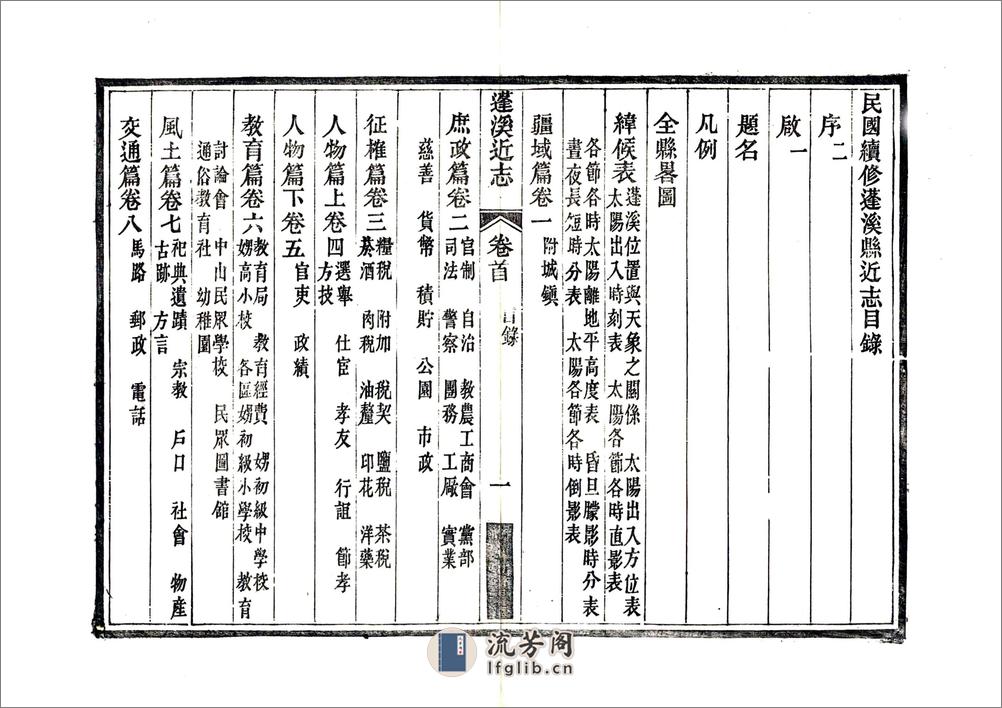 民國續修蓬溪縣近志目錄
序二
啟一
題名
凡例
全縣畧圖
緯候表 蓬溪位置與天象之關係 太陽出入方位表
太陽出入時刻表 太陽各節各時直影表
各節各時太陽離地平高度表 昏旦朦影時分表
晝夜長短時分表 太陽各節各時倒影表
疆域篇卷一 附城鎮
蓬溪近志 卷首 目錄 一
庶政篇卷二 官制 自治 教農工商會 黨部
司法 警察 團務 工厰 實業
慈善 貨幣 積貯 公園 市政
征榷篇卷三 糧稅 附加 稅契 鹽稅 茶稅
菸酒 肉稅 油釐 印花 洋藥
人物篇上卷四 選舉 仕宦 孝友 行誼 節孝
方技
人物篇下卷五 官吏 政績
教育篇卷六 教育局 教育經費 娚初級中學校
娚高小校 各區娚初級小學校 教育
討論會 中山民眾學校 民眾圖書館
通俗教育社 幼稚園
風土篇卷七 祀典遺蹟 宗教 戶口 社會 物產
古跡 方言
交通篇卷八 馬路 郵政 電話
流芳阁
lfglib.cn